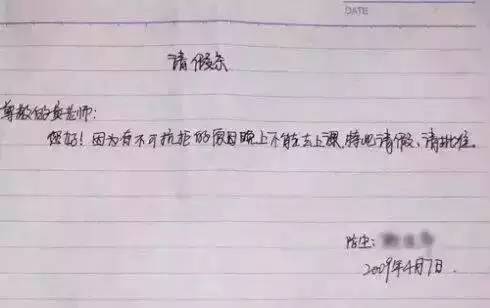 DATE
请假条
尊敬的黄老师:
您好!因为有不可抗拒的原因晚上不能去上课,特此请假,请批准。
陈生:
2009年4月7日.